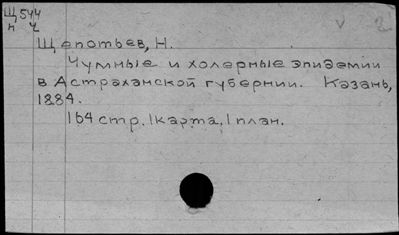 Щ544
н 4
v 2
Щепотьев, Н.
Чумные и холерные эпидемии
в Астраханской губернии. Казань,
1884.
164 стр. 1карта, 1 план.